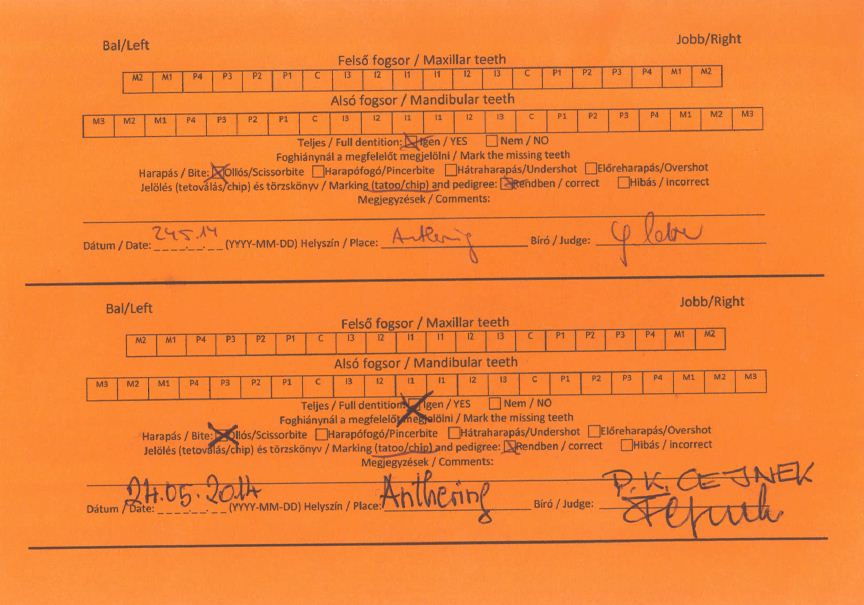 Bal/Left Jobb/Right
Felső fogsor / Maxillar teeth
M2 M1 P4 P3 P2 P1 C I3 I2 I1 I1 I2 I3 C P1 P2 P3 P4 M1 M2
Alsó fogsor / Mandibular teeth
M3 M2 M1 P4 P3 P2 P1 C I3 I2 I1 I1 I2 I3 C P1 P2 P3 P4 M1 M2 M3
Teljes / Full dentition: Igen / YES Nem / NO
Foghiánynál a megfelelőt megjelölni / Mark the missing teeth
Harapás / Bite: Ollós/Scissorbite Harapófogó/Pincerbite Hátraharapás/Undershot Előreharapás/Overshot
Jelölés (tetoválás/chip) és törzskönyv / Marking (tatoo/chip) and pedigree: Rendben / correct Hibás / incorrect
Megjegyzések / Comments:
Dátum / Date: 24.5.14 (YYYY-MM-DD) Helyszín / Place: Anthering Bíró / Judge:
Bal/Left Jobb/Right
Felső fogsor / Maxillar teeth
M2 M1 P4 P3 P2 P1 C I3 I2 I1 I1 I2 I3 C P1 P2 P3 P4 M1 M2
Alsó fogsor / Mandibular teeth
M3 M2 M1 P4 P3 P2 P1 C I3 I2 I1 I1 I2 I3 C P1 P2 P3 P4 M1 M2 M3
Teljes / Full dentition: Igen / YES Nem / NO
Foghiánynál a megfelelőt megjelölni / Mark the missing teeth
Harapás / Bite: Ollós/Scissorbite Harapófogó/Pincerbite Hátraharapás/Undershot Előreharapás/Overshot
Jelölés (tetoválás/chip) és törzskönyv / Marking (tatoo/chip) and pedigree: Rendben / correct Hibás / incorrect
Megjegyzések / Comments:
Dátum / Date: 24.05.2014 (YYYY-MM-DD) Helyszín / Place: Anthering Bíró / Judge: P.K. CEJNEK